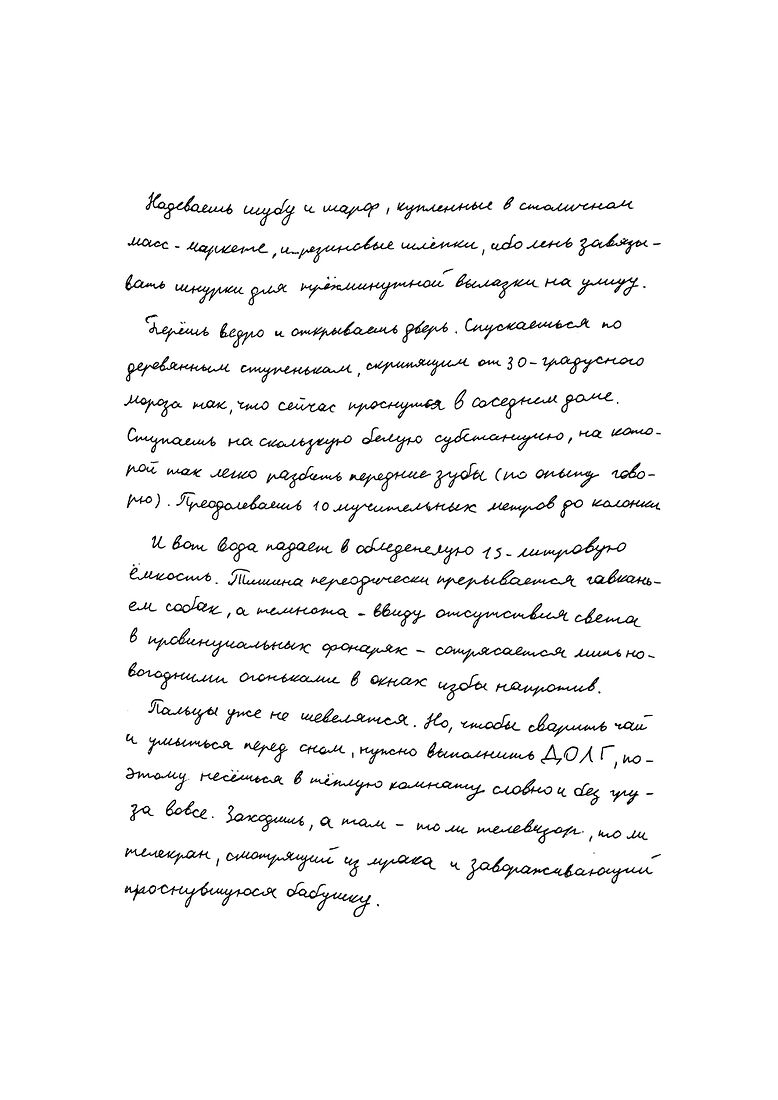 Надеваешь шубу и шарф, купленные в столичном
масс-маркете, и резиновые шлёпки, ибо лень завязы-
вать шнурки для трёхминутной вылазки на улицу.
Берёшь ведро и открываешь дверь. Спускаешься по
деревянным ступенькам, скрипящим от 30-градусного
мороза так, что сейчас проснутся в соседнем доме.
Ступаешь на скользкую белую субстанцию, на кото-
рой так легко разбить передние зубы (по опыту гово-
рю). Преодолеваешь 10 мучительных метров до колонки
И вот вода падает в обледенелую 15-литровую
ёмкость. Тишина переодически прерывается гавкань-
ем собак, а темнота - ввиду отсутствия света
в провинциальных фонарях - сотрясается лишь но-
вогодними огоньками в окнах избы напротив.
Пальцы уже не шевелятся. Но, чтобы сварить чай
и умыться перед сном, нужно выполнить ДОЛГ, по-
этому несёшься в тёплую комнату словно и без гру-
за вовсе. Заходишь, а там - то ли телевизор, то ли
телекран, смотрящий из мрака и завораживающий
проснувшуюся бабушку.